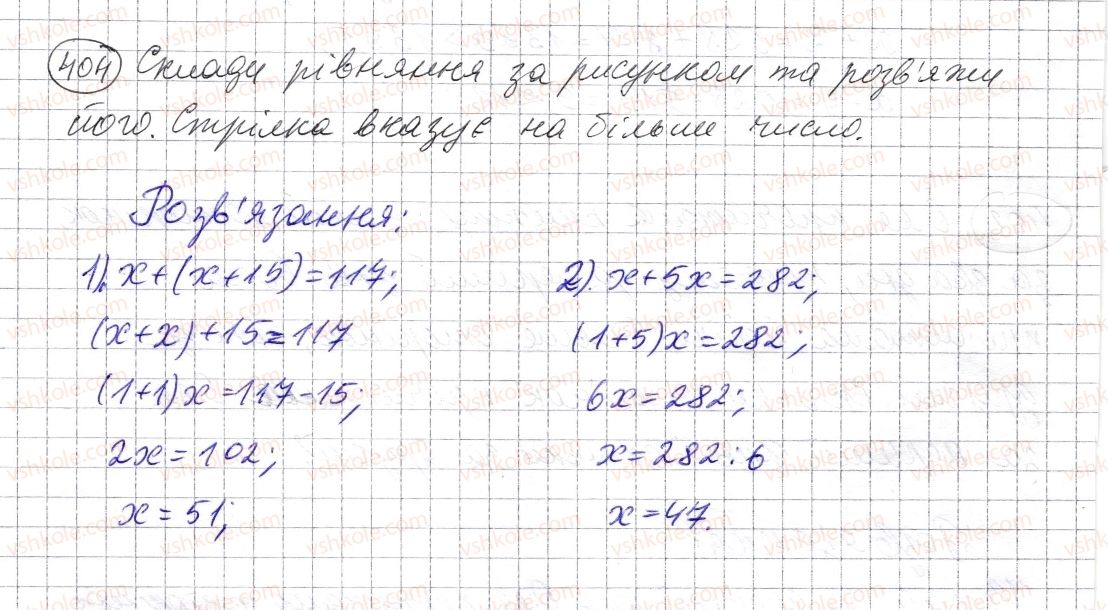 404 Склади рівняння за рисунком та розв'яжи
його. Стрілка вказує на більше число.
Розв'язання:
1). x+(x+15)=117;
(x+x)+15=117
(1+1)x=117-15;
2x=102;
x=51;
2). x+5x=282;
(1+5)x=282;
6x=282;
x=282:6
x=47.